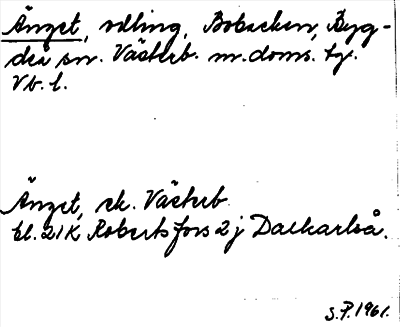 Änget, odling, Bobacken, Byg-
deå sn. Västerb. m. doms. tg.
Vb. l.
Änget, ek. Västerb.
bl. 21K Robertsfors 2j Dalkarlså.
S.P. 1961.